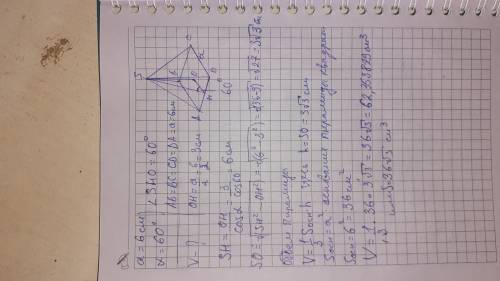 a = 6 см
α = 60°, ∠SHO = 60°
AB = BC = CD = DA = a = 6 см
V - ?
OH = a/2 = 6/2 = 3 см
SH = OH/cosα = 3/cos60° = 6 см
SO = √(SH² - OH²) = √(6² - 3²) = √(36-9) = √27 = 3√3 см
Объем пирамиды
V = 1/3 Sосн h здесь h = SO = 3√3 см
Sосн = a² основание пирамиды квадрат
Sосн = 6² = 36 см²
V = 1/3 · 36 · 3√3 = 36√3 = 62,353829 см³
36√3 см³
S
C
B
O
D
H
A
60°